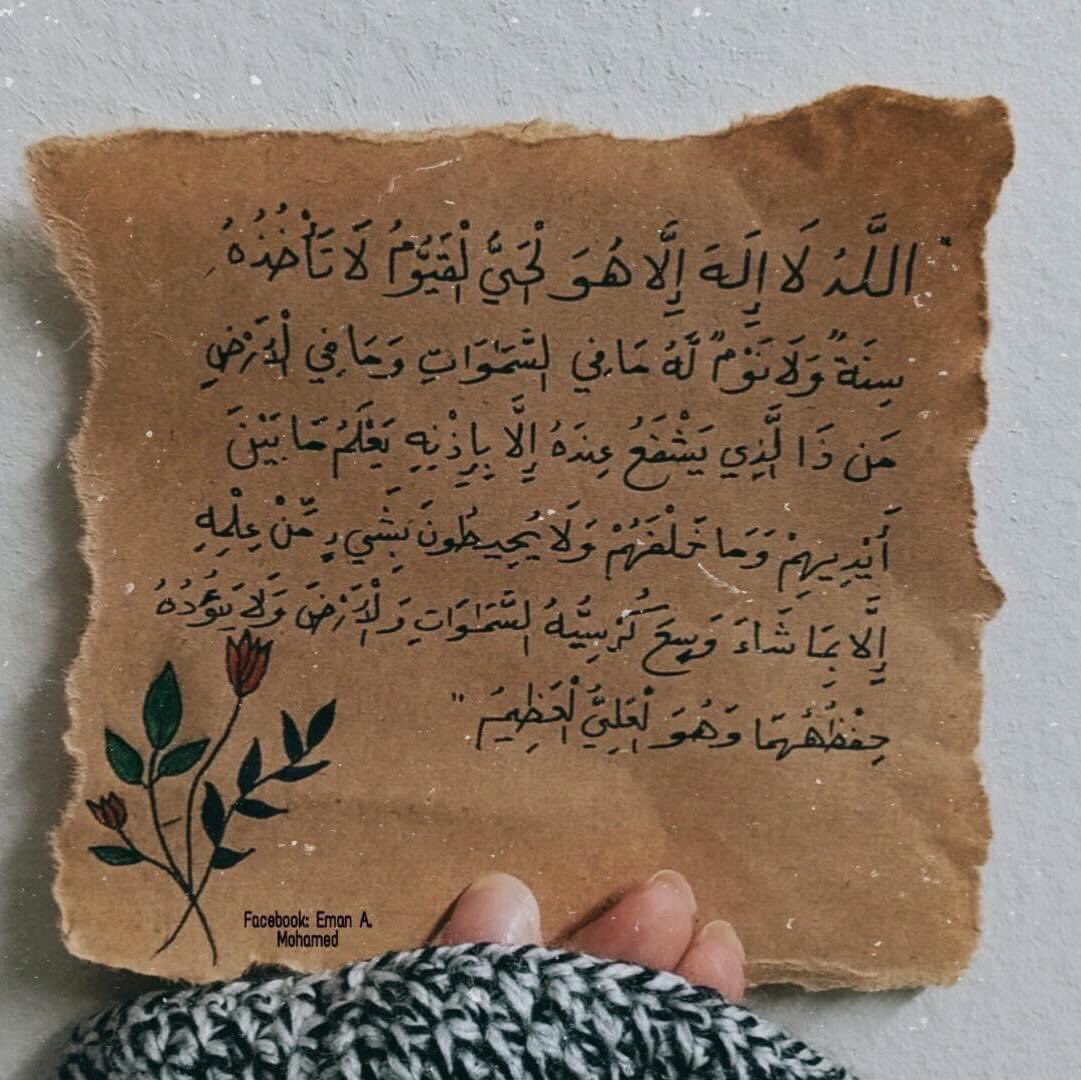 " اللَّهُ لَا إِلَهَ إِلَّا هُوَ لْحَيُّ لْقَيُّومُ لَا تَأْخُذُهُ
سِنَةٌ وَلَا نَوْمٌ لَّهُ مَا فِي السَّمَوَاتِ وَمَا فِي لْأَرْضِ
مَن ذَا لَّذِي يَشْفَعُ عِندَهُ إِلَّا بِإِذْنِهِ يَعْلَمُ مَا بَيْنَ
أَيْدِيهِمْ وَمَا خَلْفَهُمْ وَلَا يُحِيطُونَ بِشَيْءٍ مِّنْ عِلْمِهِ
إِلَّا بِمَا شَاءَ وَسِعَ كُرْسِيُّهُ السَّمَوَاتِ وَلْأَرْضَ وَلَا يَئُودُهُ
حِفْظُهُمَا وَهُوَ لْعَلِيُّ لْعَظِيمُ "
Facebook: Eman A.
Mohamed